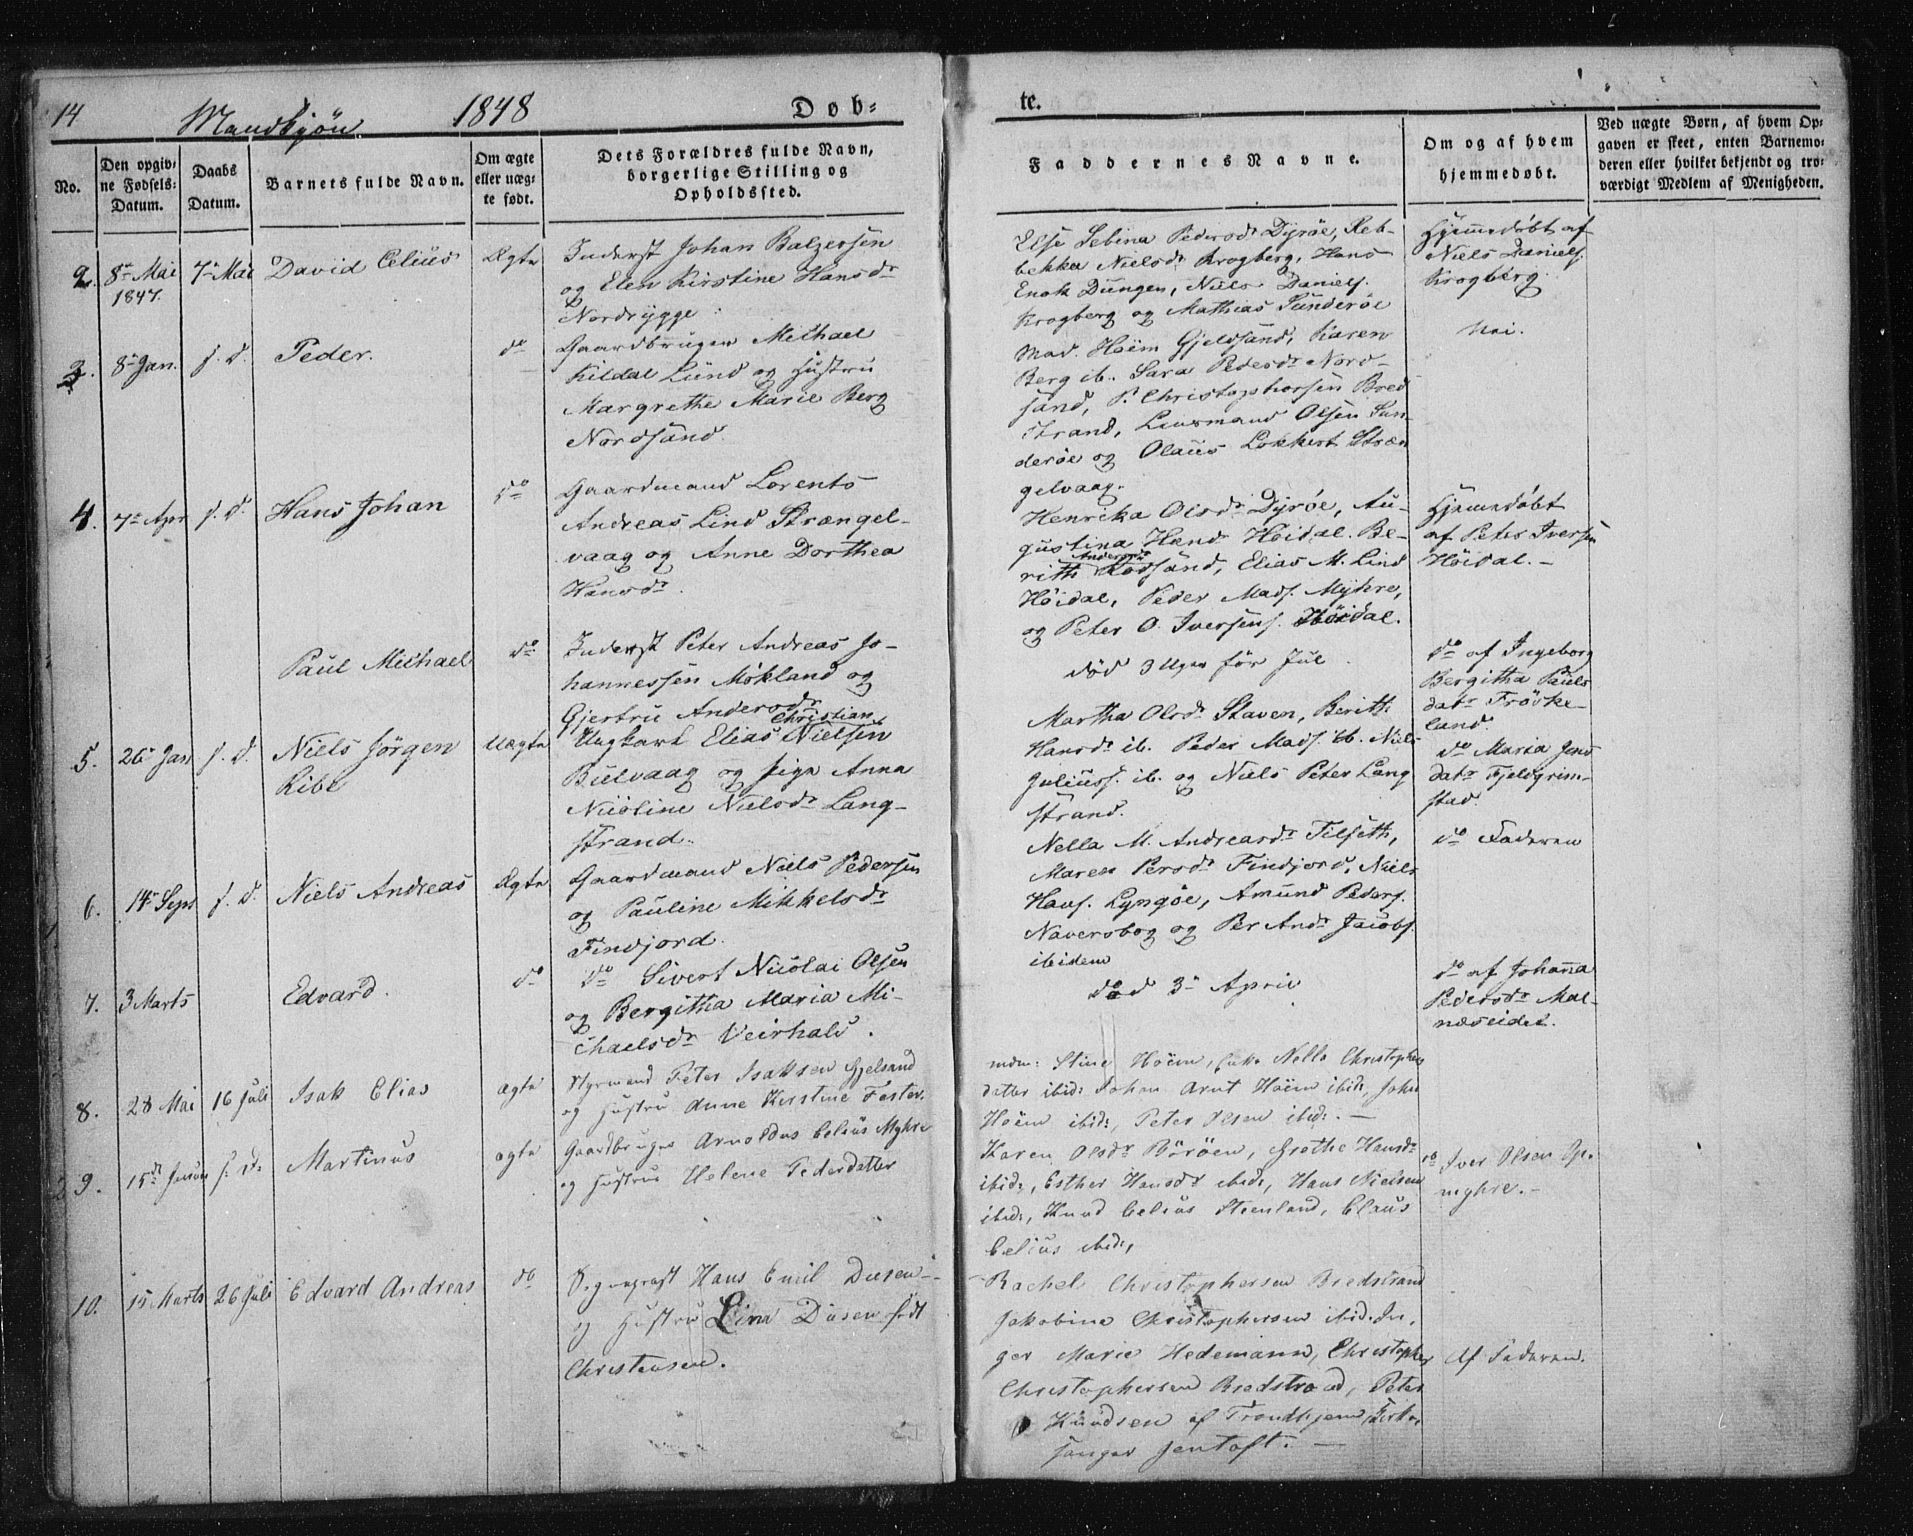 14 Mandkjøn 1848 Døb=
te.
No.
Den opgiv=
ne Fødsels=
Datum.
Daabs
Datum.
Barnets fulde Navn.
Om ægte
eller uæg=
te født.
Dets Forældres fulde Navn,
borgerlige Stilling og
Opholdssted.
Faddernes Navne.
Om og af hvem
hjemmedøbt.
Ved uægte Børn, af hvem Op=
gaven er skeet, enten Barnemo=
deren eller hvilket bekjendt og tro=
værdigt Medlem af Menigheden.
2. 8de Mai 7de Mai David Celius Ægte
1847.
Inderst Johan Balzersen
og Elen Kirstine Hansdr
Nordrygge.
Else Sebina Pedersdr Dyrøe, Reb-
bekka Nielsdr Krogberg, Hans
Enok Dungen, Niels Daniels.
Krogberg og Mathias Sunderøe
Hjemmedøbt af
Niels Daniels.
Krogberg.
3. 8de Jan. s. d. Peder. do
Gaardbruger Michael
Kildal Lund og Hustru
Margrethe Marie Berg
Nordsand.
Mad. Høem Gjeldsand, Karen
Berg ib. Sara Pedersdr Nord-
sand, P. Christophersen Bred-
strand, Leursmand Olsen Sun-
derøe og Olaus Lokkert Stræn
gelvaag.
Nei.
4. 7de Apr s. d. Hans Johan do
Gaardmand Lorents
Andreas Lind Strængel-
vaag og Anne Dorthea
Hansdr.
Henrika Olsdr Dyrøe, Au-
gustina Hendr Høidal. Be-
rith Andersdr Rødsand, Elias M. Lind
Høidal, Peder Mads. Myhre,
og Peter O. Iversens. Høidal.
Hjemmedøbt
af Peter Iversen
Høidal. -
Paul Michael do
Inderst Peter Andreas Jo-
hannessen Mökland og
Gjertru Andersdr
død 3 Uger før Jul.
do af Ingeborg
Bergitha Pauls
datr Fröske-
land.
5. 26de Jan s. d. Niels Jörgen Uægte
Ribe
Ungkarl Elias Christian Nielsen
Buelvaag og pige Anna
Nicoline Nielsdr Lang-
strand.
Martha Olsdr Staven, Berith
Hansdr ib. Peder Mads. ib. Niels
Juliuss. ib. og Niels Peter Lang
strand.
do Maria Jens
datr Fjeldgrim-
stad.
6. 14de Sept s. d. Niels Andreas Ægte
Gaardmand Niels Pedersen
og Pauline Mikkelsdr
Finfjord.
Nella M. Andreasdr Tilseth,
Maren Persdr Finfjord, Niels
Hans. Lyngøe, Amund Peders.
Naversbog og Per Andr Jacobs.
ibidem
do Faderen
7. 3 Marts Edvard. do
do Sivert Nicolai Olsen
og Bergitha Maria Mi-
chaelsdr Veirhals.
død 3de April
do af Johanna
Pedersdr Mal-
næseidet.
8. 28 Mai 16 Juli Isak Elias ægte
Styrmand Peter Isaksen Gjelsand
og Hustru Anne Kirstine Fester.
mdm: Stine Höem, Nella Christophers
datter ibid: Johan Arnt Höem ibid:, John
Höem ibid:, Peter Olsen ibid:. -
9. 15de Januar s: D: Martinus ægte
Gaardbruger Arnoldus Celius Myhre
og Hustrue Helene Pedersdatter
Karen Olsdr Börøen, Grethe Hansdr
ibid:, Esther Hansdr ibid:, Hans Nielsen
ibid:, Knud Celius Steenland, Claus
Celius ibid:,
do Iver Olsen Op.
myhre. -
10. 15 Marts 26 Juli Edvard Andreas do
Hans Emil Duesen
og Hustru Lina Duesen født
Christensen.
Rachel Christophersen Bredstrand
Jakobine Christophersen ibid. In,
ger Marie Hedemann, Christopher
Christophersen Bredstrand, Peter
Knudsen af Trondhjem, Kirke,
sanger Jentoft. -
Af Faderen.